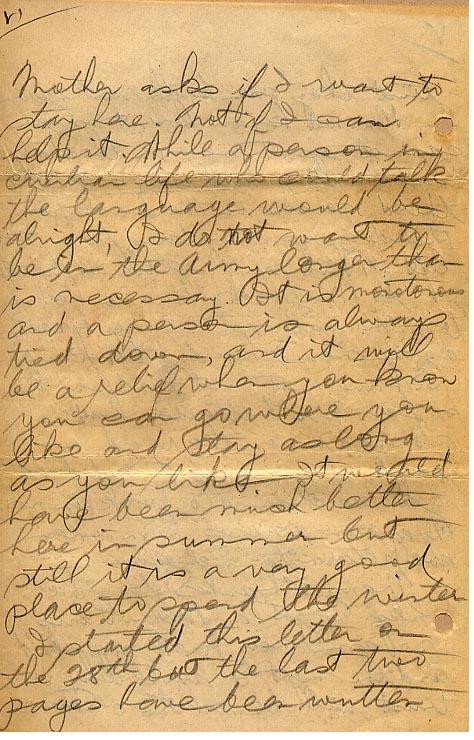 Mother asks if I want to
stay here. Not if I can
help it. While a person in
civilian life who could talk
the language would be
alright, I do not want to
be in the Army longer than
is necessary. It is monotonous
and a person is always
tied down, and it will
be a relief when you know
you can go where you
like and stay as long
as you like. It would
have been much better
here in summer but
still it is a very good
place to spend the winter
I started this letter on
the 28th but the last two
pages have been written